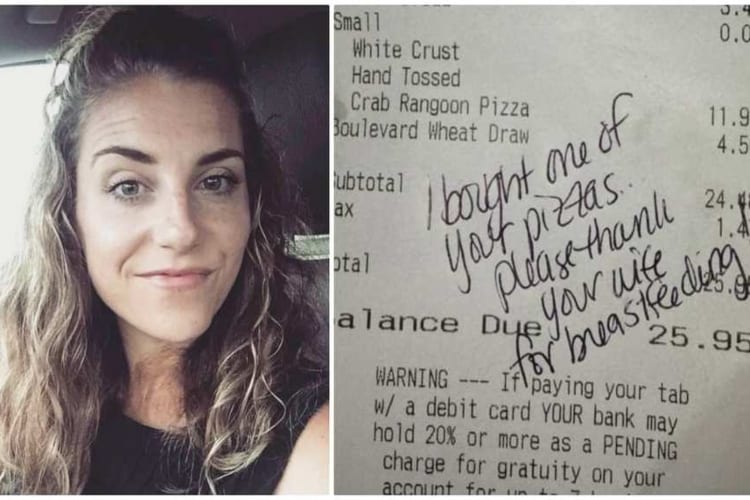 Small 0.0
White Crust
Hand Tossed
Crab Rangoon Pizza 11.9
Boulevard Wheat Draw 4.5
ubtotal 24.
ax 1.4
otal
alance Due 25.95
I bought one of
your pizzas..
please thank
your wife
for breastfeeding
WARNING --- If paying your tab
w/ a debit card YOUR bank may
hold 20% or more as a PENDING
charge for gratuity on your
account for